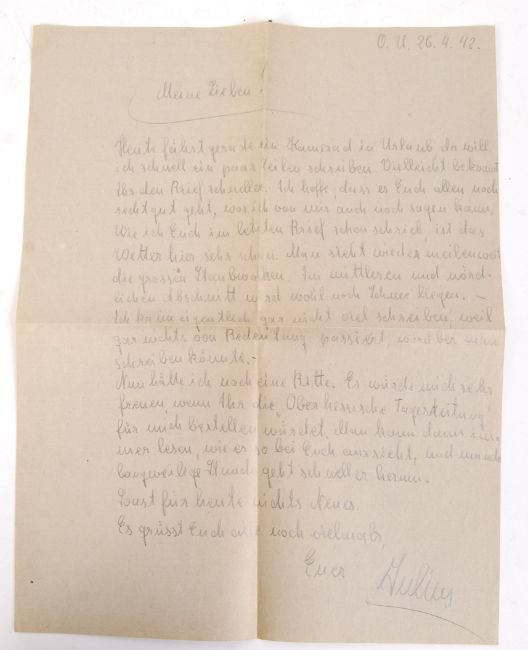 O. U. 26. 4. 42.
Meine Lieben!
Heute fährt gerade ein Kamerad in Urlaub da will
ich schnell ein paar Zeilen schreiben. Vielleicht bekommt
Ihr den Brief schneller. Ich hoffe, dass es Euch allen noch
recht gut geht, was ich von mir auch noch sagen kann.
Wie ich Euch im letzten Brief schon schrieb, ist das
Wetter hier sehr schön. Man sieht wieder meilenweit
die grossen Staubwolken. Im mittleren und nörd-
lichen Abschnitt wird wohl noch Schnee liegen. —
Ich kann eigentlich gar nicht viel schreiben, weil
gar nichts von Bedeutung passiert, worüber man
schreiben könnte. –
Nun hätte ich noch eine Bitte. Es würde mich sehr
freuen wenn Ihr die „Oberhessische Tageszeitung"
für mich bestellen würdet. Man kann dann im-
mer lesen, wie es so bei Euch aussieht, und manche
langweilige Stunde geht schneller herum.
Sonst für heute nichts Neues.
Es grüsst Euch alle noch vielmals,
Euer Julius